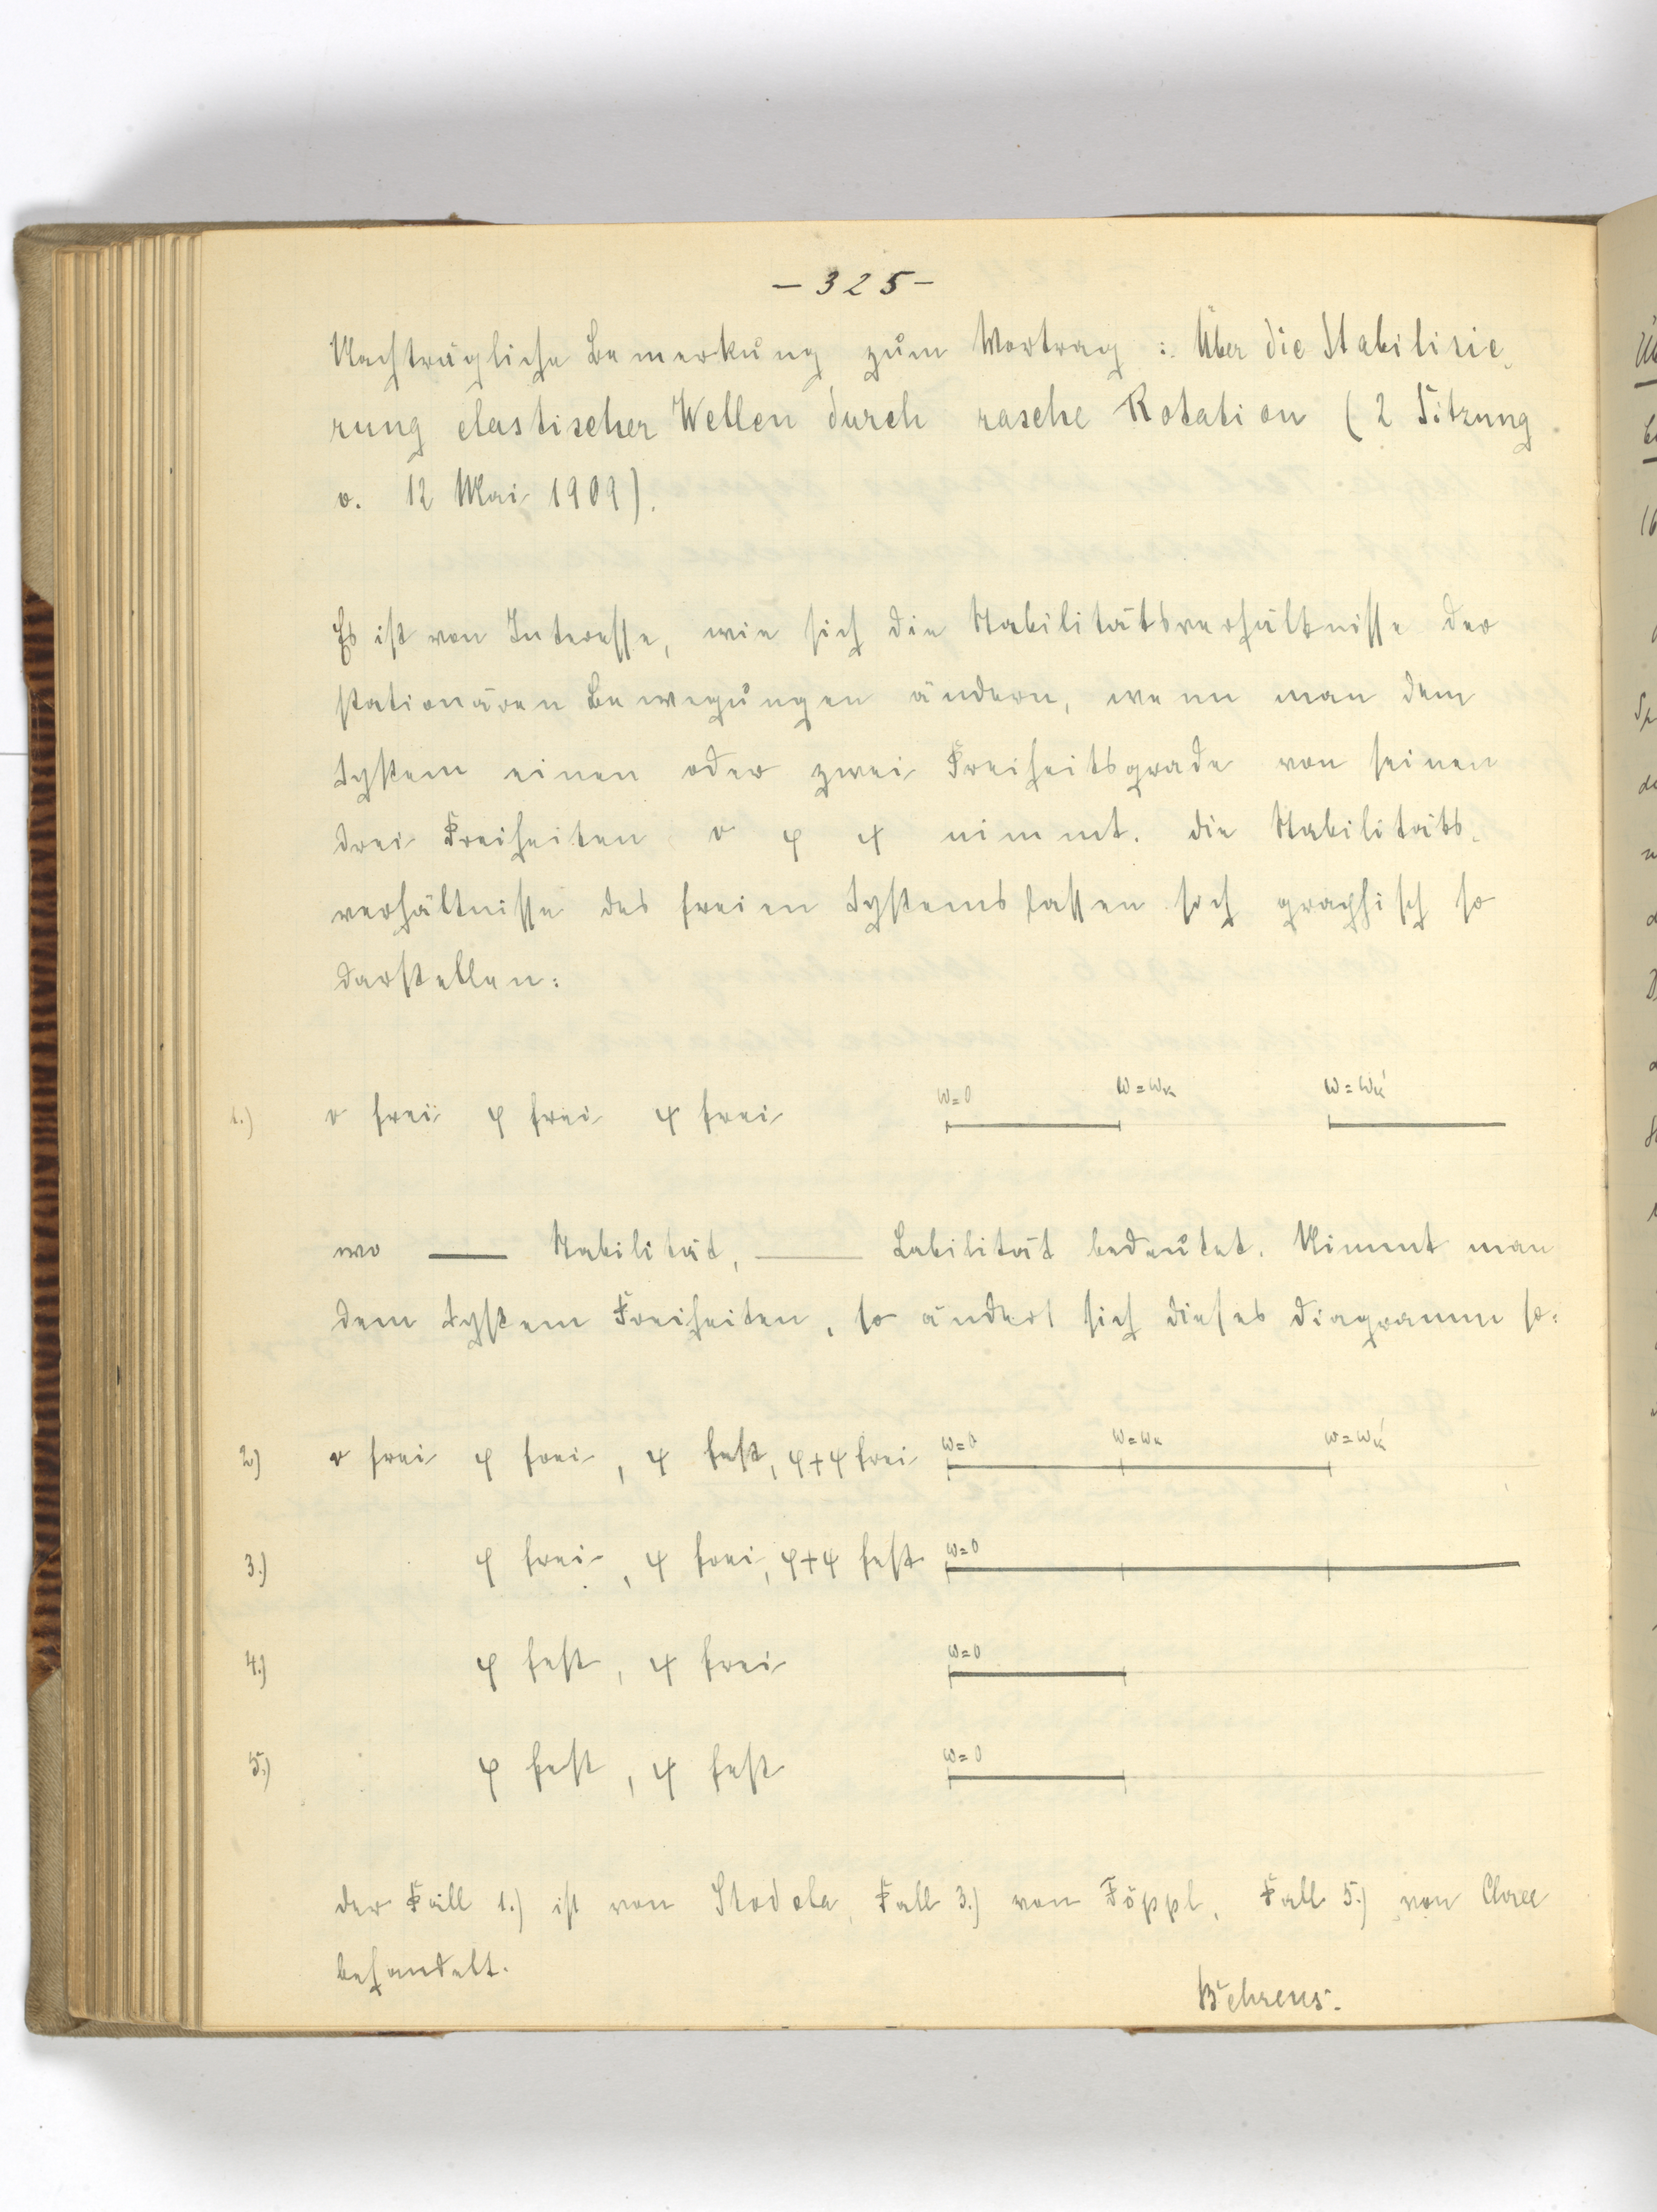 – 325 –
Nachträgliche Bemerkung zum Vortrag : Über die Stabilisie-
rung elastischer Wellen durch rasche Rotation (2 Sitzung
v. 12 Mai 1909).
Es ist von Interesse, wie sich die Stabilitätsverhältnisse der
stationären Bewegungen ändern, wenn man dem
System einen oder zwei Freiheitsgrade von seinen
drei Freiheiten v φ ψ nimmt. die Stabilitäts-
verhältnisse des freien Systems lassen sich graphisch so
darstellen:
1.) v frei φ frei ψ frei ω=0 ω=ωk ω=ωk'
wo —— Stabilität, —— Labilität bedeutet. Nimmt man
dem System Freiheiten, so ändert sich dieses Diagramm so:
2) v frei φ frei, ψ fest, φ+ψ frei ω=0 ω=ωk ω=ωk'
3.) φ frei, ψ frei, φ+ψ fest ω=0
4.) φ fest, ψ frei ω=0
5.) φ fest, ψ fest ω=0
der Fall 1.) ist von Stodola, Fall 3.) von Föppl, Fall 5.) von
behandelt.
Behrens.